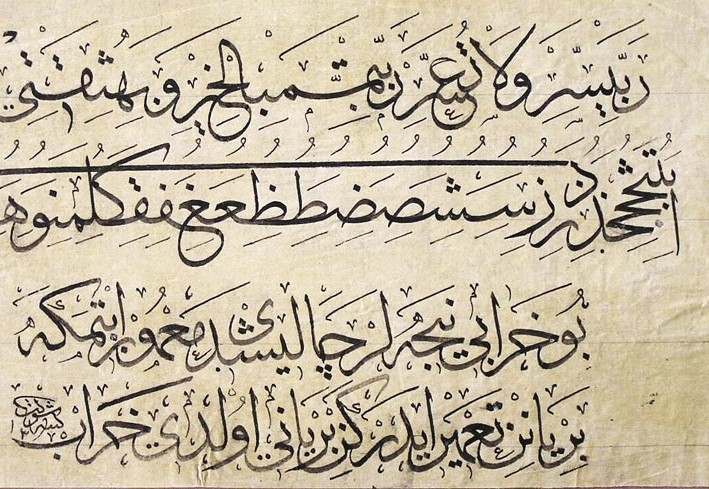 رب يسر ولا تعسر رب تمم بالخير وبه ثقتي
ابتثجحخدذرزسشصضطظعغفقكلمنوه
بو خرابی نیجه لر چالیشدی معمور ایتمکه
بر یانن تعمیر ایدرکن بر یانی اولدی خراب